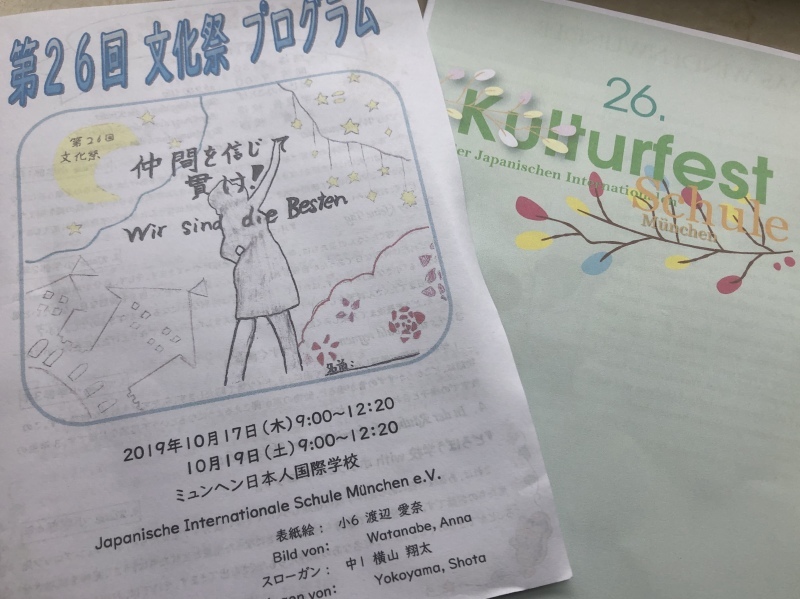 第26回 文化祭 プログラム
第26回
文化祭
仲間を信じて
貫け!
Wir sind die Besten
名前:
2019年10月17日(木)9:00~12:20
10月19日(土)9:00~12:20
ミュンヘン日本人国際学校
Japanische Internationale Schule München e.V.
表紙絵: 小6 渡辺 愛奈
Bild von: Watanabe, Anna
スローガン: 中1 横山 翔太
von: Yokoyama, Shota
26.
Kulturfest
der Japanischen Internationalen
Schule
München